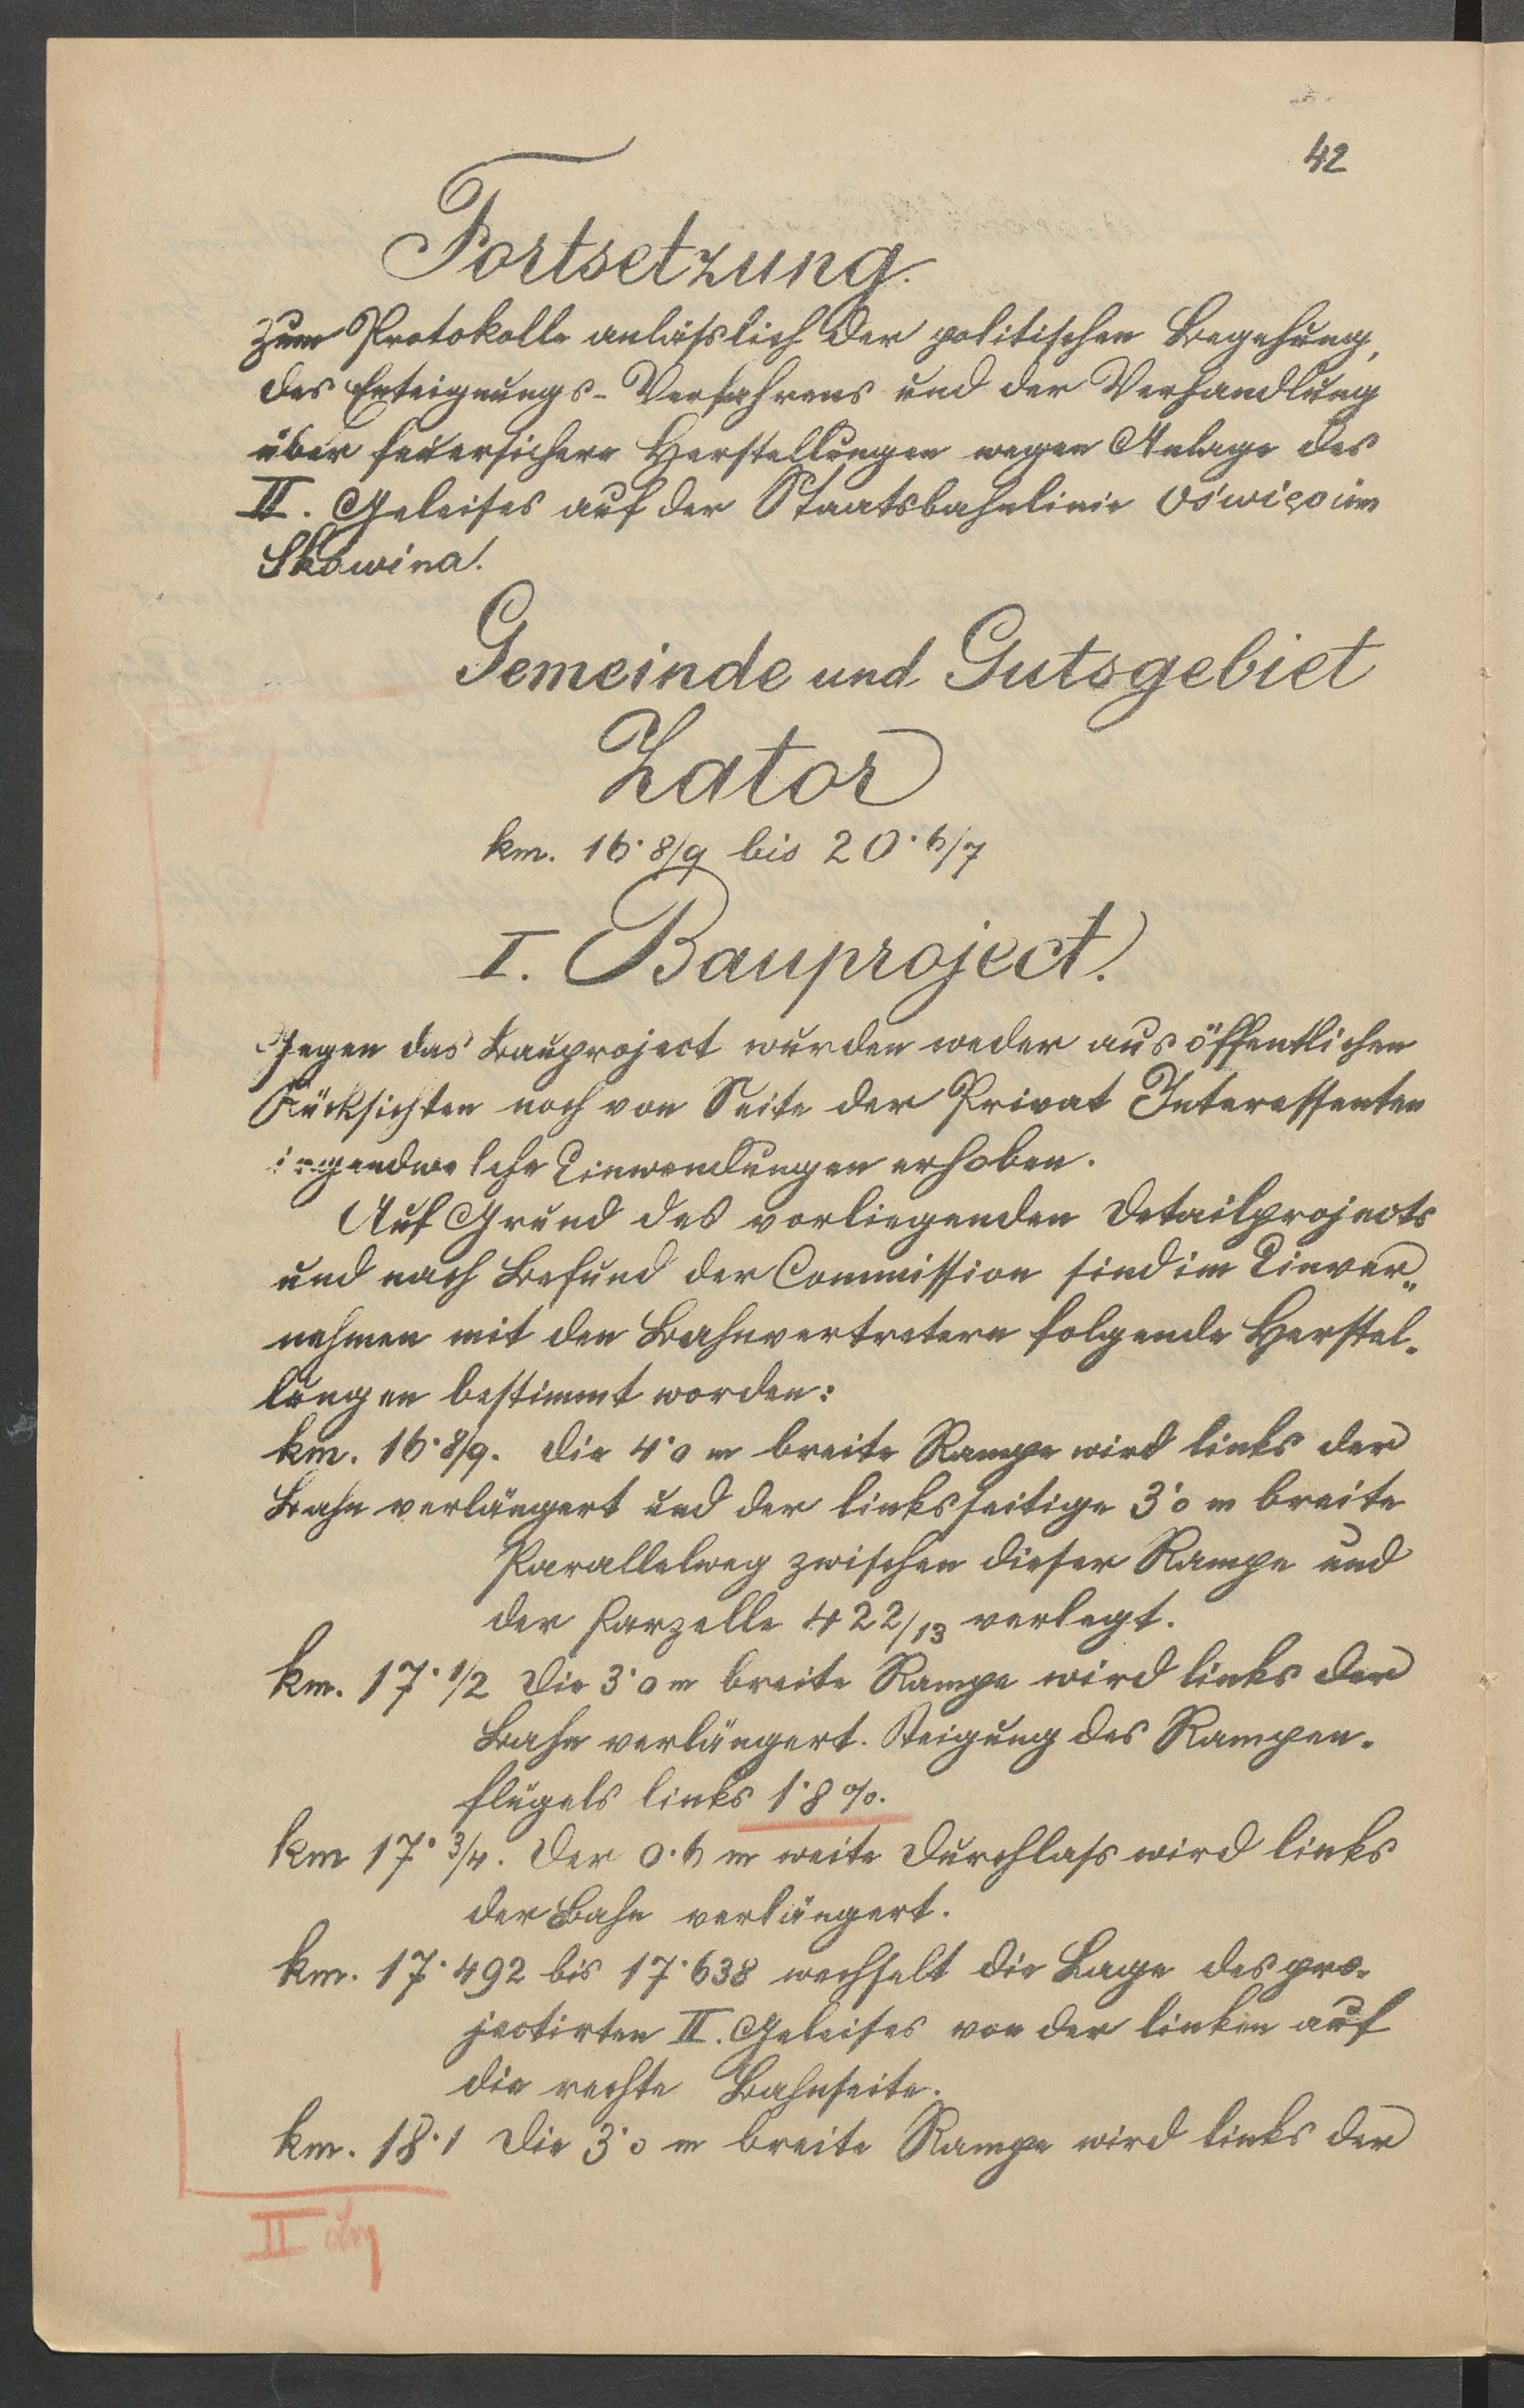 42
Fortsetzung.
zum Protokolle anlässlich der politischen Begehung,
des Enteignungs-Verfahrens und der Verhandlung
über feuersichere Herstellungen wegen Anlage des
II. Geleises auf der Staatsbahnlinie Oświęcim
Skawina.
Gemeinde und Gutsgebiet
Zator
km. 16·8/9 bis 20·6/7
I. Bauproject.
Gegen das Bauproject wurden weder aus öffentlichen
Rücksichten noch von Seite der Privat Interessenten
irgendwelche Einwendungen erhoben.
Auf Grund des vorliegenden Detailprojects
und nach Befund der Commission sind im Einver„
nehmen mit den Bahnvertretern folgende Herstel-
lungen bestimmt worden:
km. 16·8/9. Die 4·0 m breite Rampe wird links der
Bahn verlängert und der linksseitige 3·0 m breite
Parallelweg zwischen dieser Rampe und
der Parzelle 422/13 verlegt.
km. 17·1/2 Die 3·0 m breite Rampe wird links der
Bahn verlängert. Steigung des Rampen-
flügels links 1·8%.
km 17·3/4. Der 0·6 m weite Durchlass wird links
der Bahn verlängert.
km. 17·492 bis 17·638 wechselt die Lage des pro-
jectirten II. Geleises von der linken auf
die rechte Bahnseite.
km. 18·1 Die 3·0 m breite Rampe wird links der
II